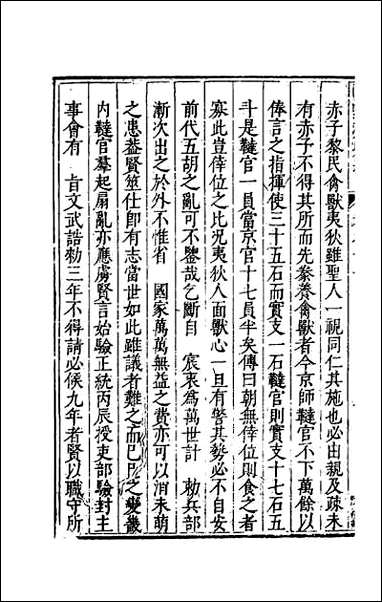 赤子黎民禽獸夷狄雖聖人一視同仁其施也必由親及疎未
有赤子不得其所而先豢養禽獸者今京師韃官不下萬餘以
俸言之指揮使三十五石而實支一石韃官則實支十七石五
斗是韃官一員當京官十七員半矣傳曰朝無倖位則食之者
寡此豈倖位之比况夷狄人面獸心一旦有警其勢必不自安
前代五胡之亂可不鑒哉乞斷自 宸衷爲萬世計 勑兵部
漸次出之於外不惟省 國家萬萬無益之費亦可以消未萌
之患葢賢筮仕即有志當世如此雖議者難之而己巳之變畿
内韃官羣起扇亂亦應虜賢言始驗正統丙辰授吏部驗封主
事會有 旨文武誥勑三年不得請必候九年者賢以職守所